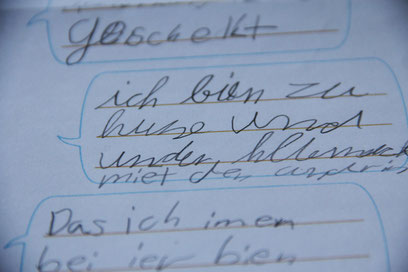 goschekt
ich bien zu
huse und
und
miet den
Das ich imen
bei ier bien